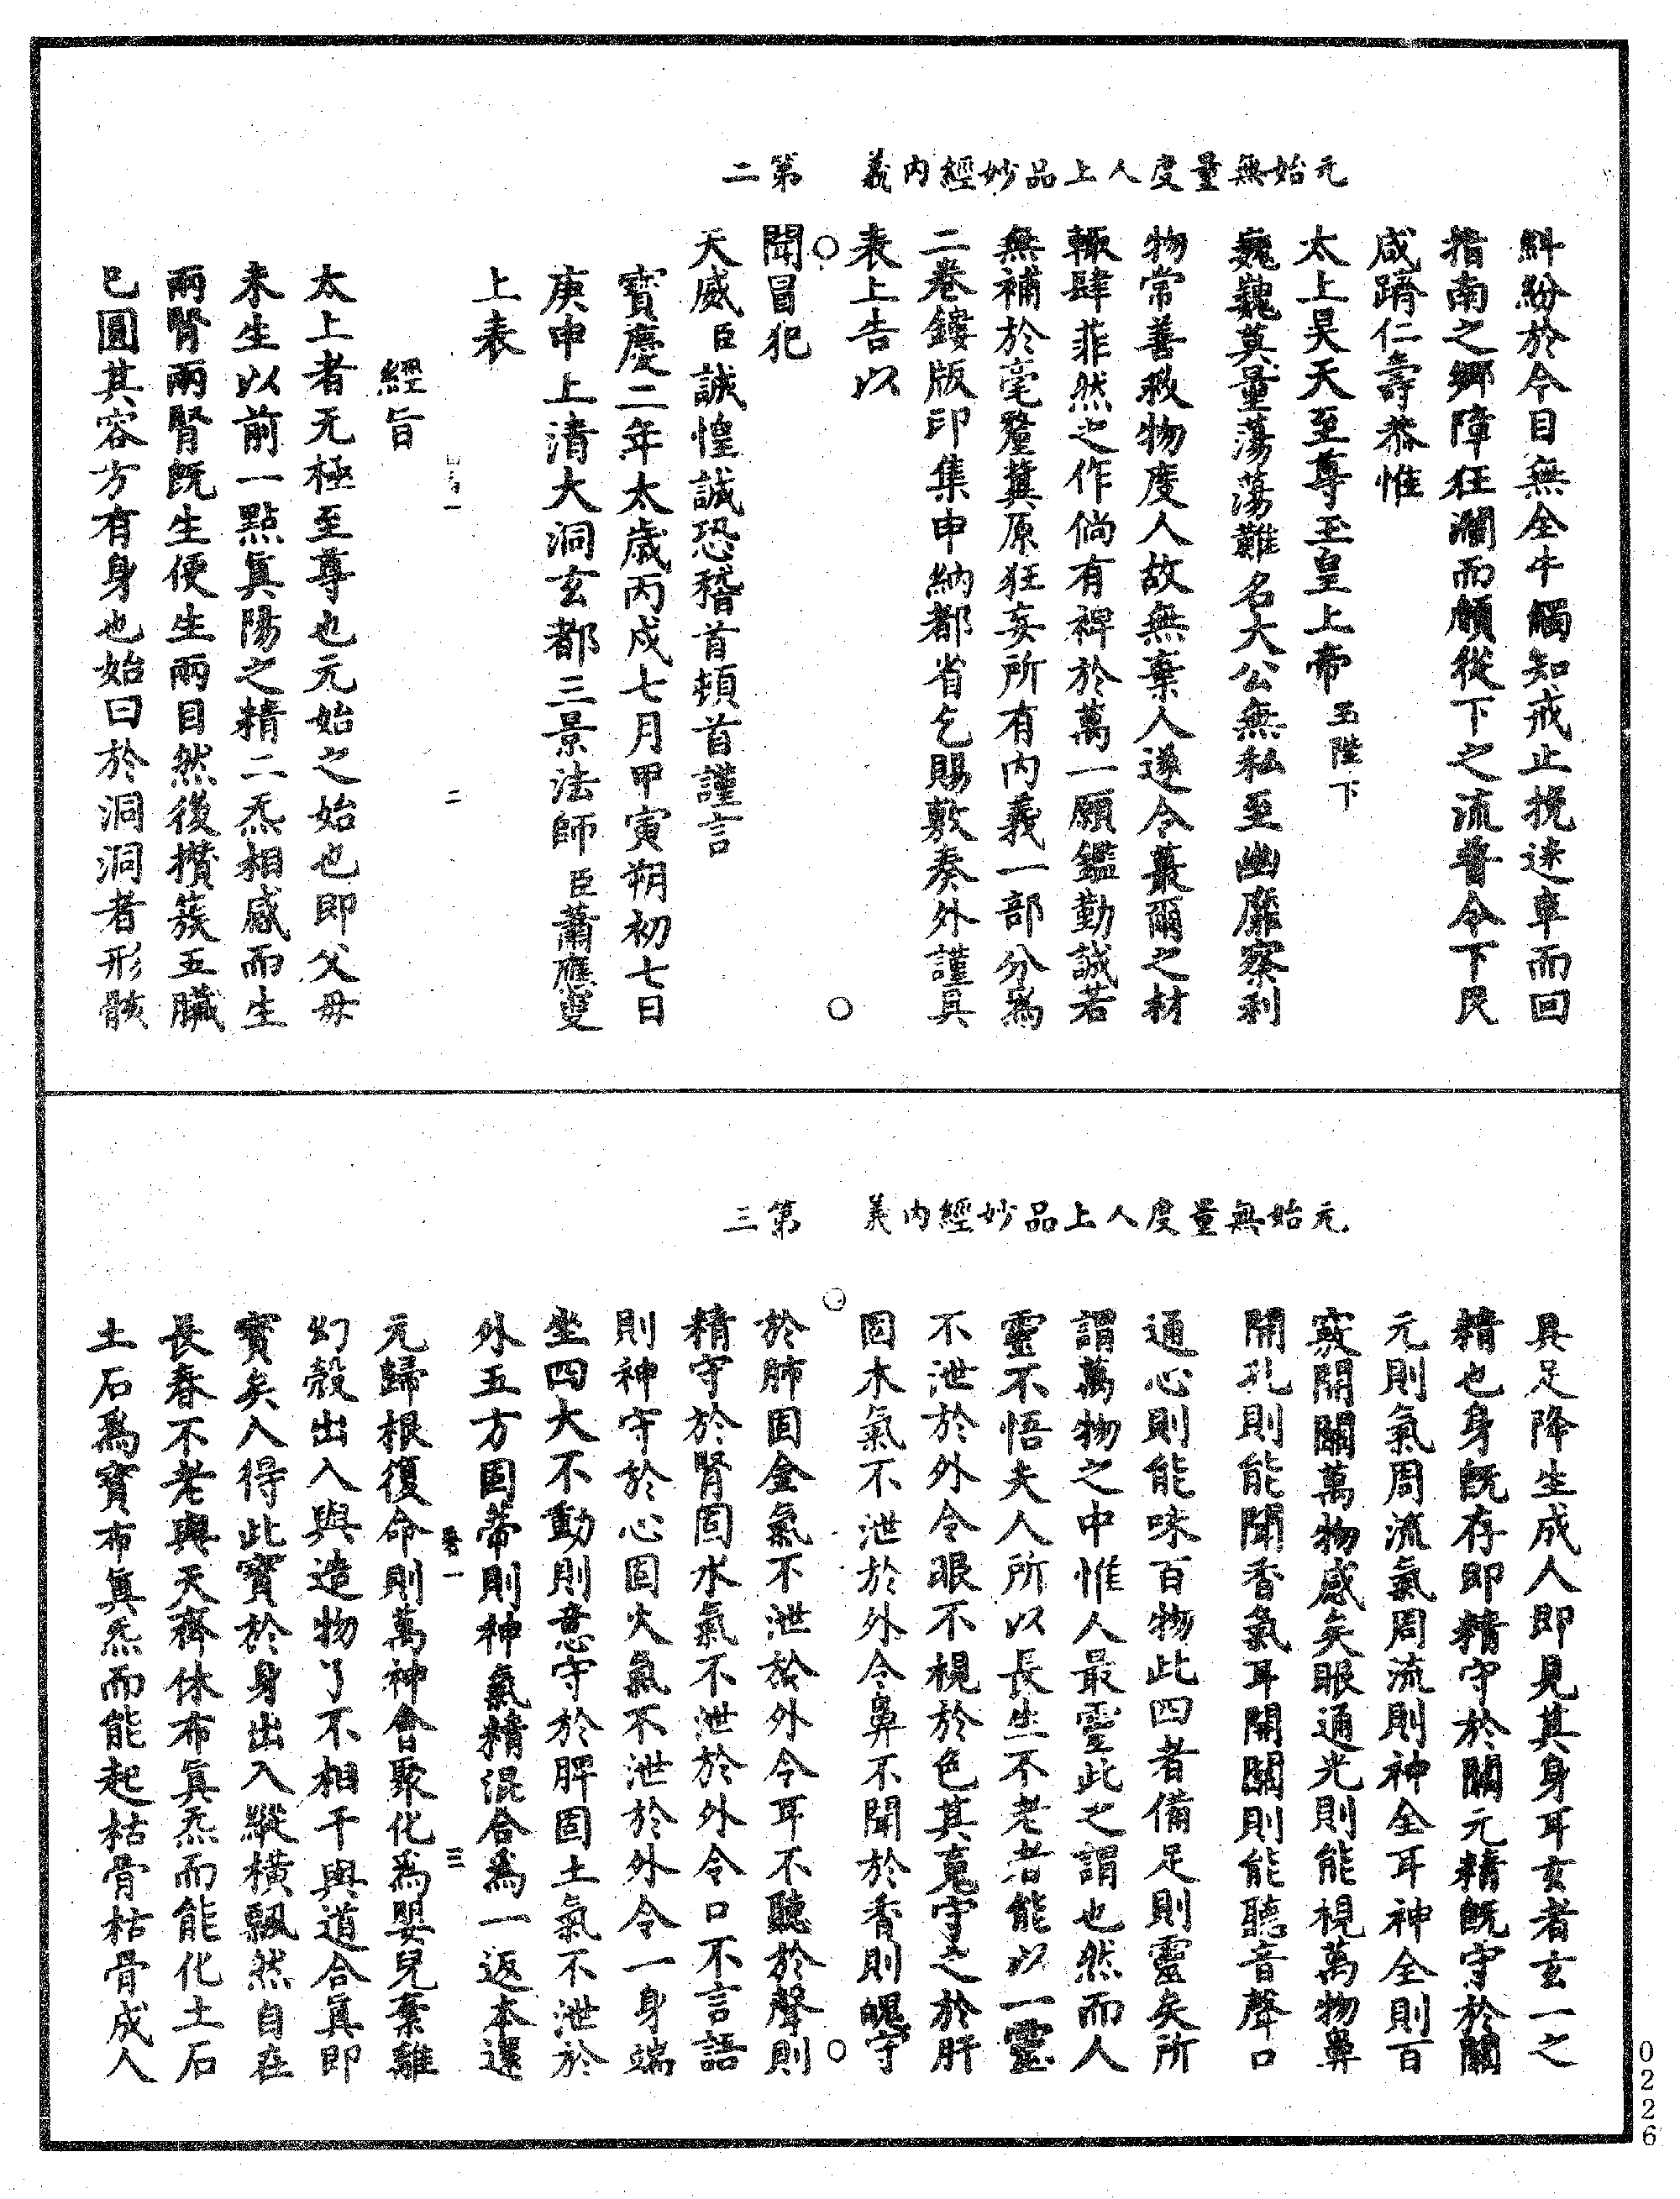 元始無量度人上品妙經內義　第二
糾紛於今目無全牛觸知戒止挽迷車而回
指南之鄉障狂瀾而頫從下之流普令下民
咸躋仁壽恭惟
太上昊天至尊玉皇上帝玉陛下
巍巍莫量蕩蕩難名大公無私至幽靡察利
物常善救物度人故無棄人遂令蕞爾之材
輒肆菲然之作倘有裨於萬一願鑑勤誠若
無補於毫釐冀原狂妄所有內義一部分為
二卷鏤版印集申納都省乞賜敷奏外謹具
表上告以
聞冒犯
天威臣誠惶誠恐稽首頓首謹言
寶慶二年太歲丙戌七月甲寅朔初七日
庚申上清大洞玄都三景法師臣蕭應叟
上表
二
經旨
太上者无極至尊也元始之始也即父母
未生以前一點眞陽之精二炁相感而生
兩腎兩腎既生便生兩目然後攢簇五臟
已圓其容方有身也始曰於洞洞者形骸
元始無量度人上品妙經內義　第三
具足降生成人即見其身耳玄者玄一之
精也身既存即精守於關元精既守於關
元則氣周流氣周流則神全耳神全則百
竅開關萬物感矣眼通光則能視萬物鼻
開孔則能聞香氣耳開關則能聽音聲口
通心則能味百物此四者備足則靈矣所
謂萬物之中惟人最靈此之謂也然而人
靈不悟夫人所以長生不老者能以一靈
不泄於外令眼不視於色其䰟守之於肝
固木氣不泄於外令鼻不聞於香則魄守
於肺固金氣不泄於外令耳不聽於聲則
精守於腎固水氣不泄於外令口不言語
則神守於心固火氣不泄於外令一身端
坐四大不動則意守於脾固土氣不泄於
外五方固蒂則神氣精混合為一返本還
卷一　三
元歸根復命則萬神會聚化為嬰兒棄離
幻殼出入與造物了不相干與道合眞即
寶矣入得此寶於身出入縱橫飄然自在
長春不老與天齊休布眞炁而能化土石
土石為寶布眞炁而能起枯骨枯骨成人
0226